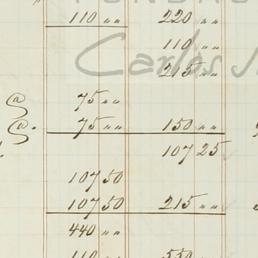 110 " " 220 " "
110 " "
Carlos
215 " "
@ 75 " "
@. 75 " " 150 " "
107 25
107 50
107 50 215 " "
440 " "
110 " " 550 " "